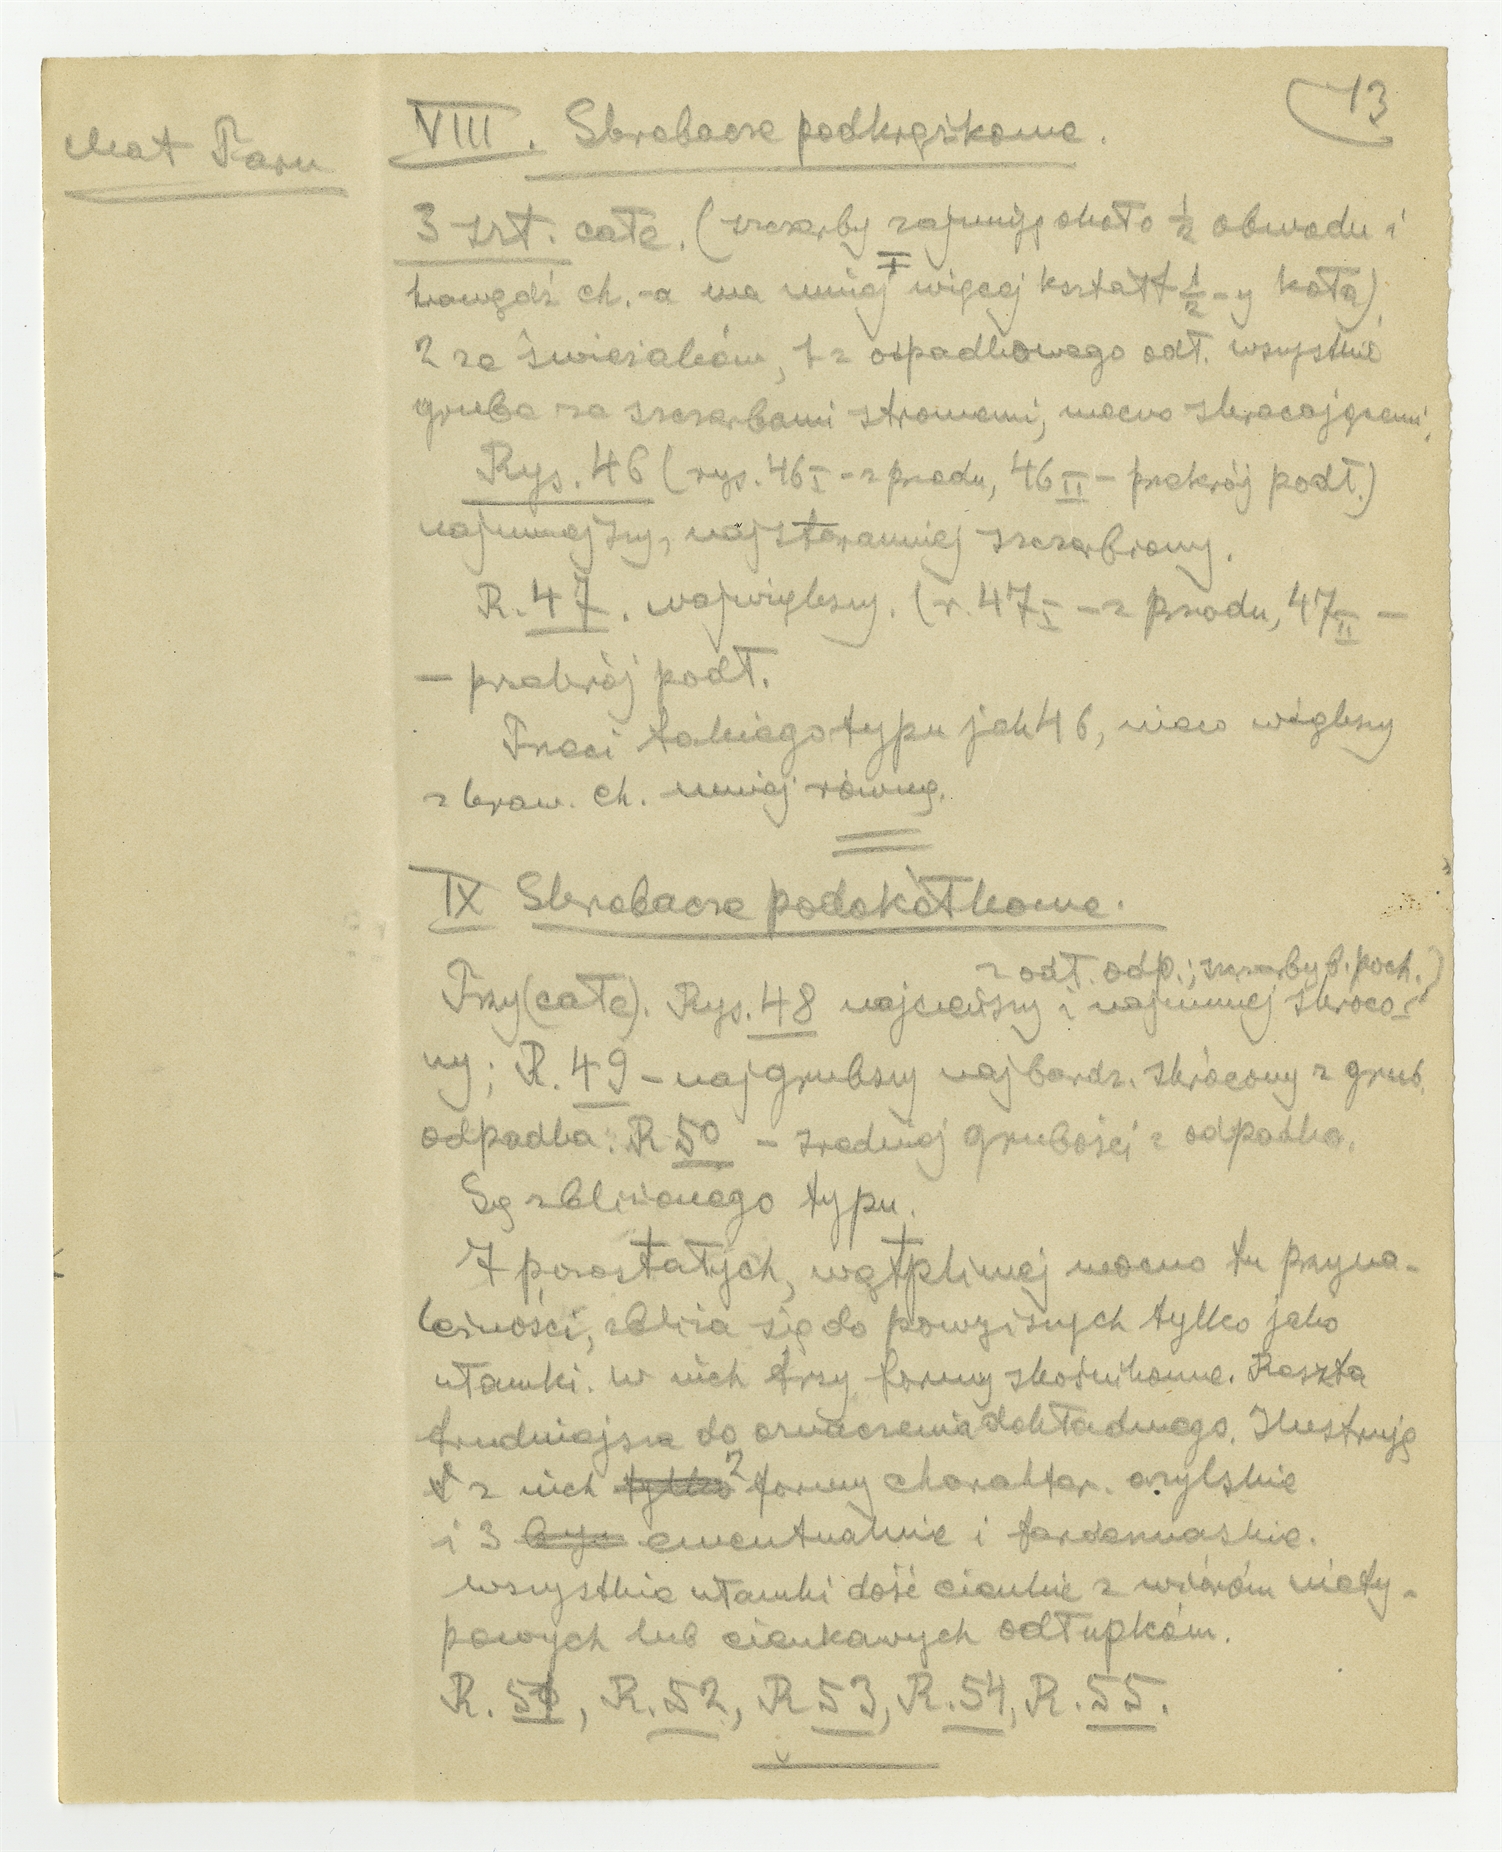 13
Mat Tarn
VIII. Skrobacze podkrążkowe.
3 szt. całe. (szczerby zajmują około 1/2 obwodu i
krawędź ch.-a ma mniej więcej kształt 1/2-y koła)
2 ze świeżaków, 1 z odpadkowego odł. wszystkie
grube ze szczerbami stromemi, mocno skracającemi.
Rys. 46 (rys. 46 I - z przodu, 46 II - przekrój podł.)
najmniejszy, najstaranniej szczerbiony.
R. 47. największy. (r. 47 I - z przodu, 47 II -
- przekrój podł.
Trzeci takiego typu jak 46, nieco większy
z kraw. ch. mniej równą.
IX Skrobacze podokółkowe.
z odł. odp.; szczerby b. poch.)
Trzy (całe). Rys. 48 najcieńszy i najmniej skróco-
ny; R. 49 - najgrubszy najbardz. skrócony z grub.
odpadka. R 50 - średniej grubości z odpadka.
Są zbliżonego typu.
7 pozostałych, wątpliwej mocno tu przyna-
leżności, zbliża się do powyższych tylko jako
ułamki. W nich trzy formy skośnikowe. Reszta
trudniejsza do oznaczenia dokładnego. Ilustruję
z nich tylko 2 formy charakter. azylskie
i 3 ewentualnie i tardenuaskie.
wszystkie ułamki dość cienkie z wiórów niety-
powych lub cienkawych odłupków.
R. 51, R. 52, R 53, R. 54, R. 55.